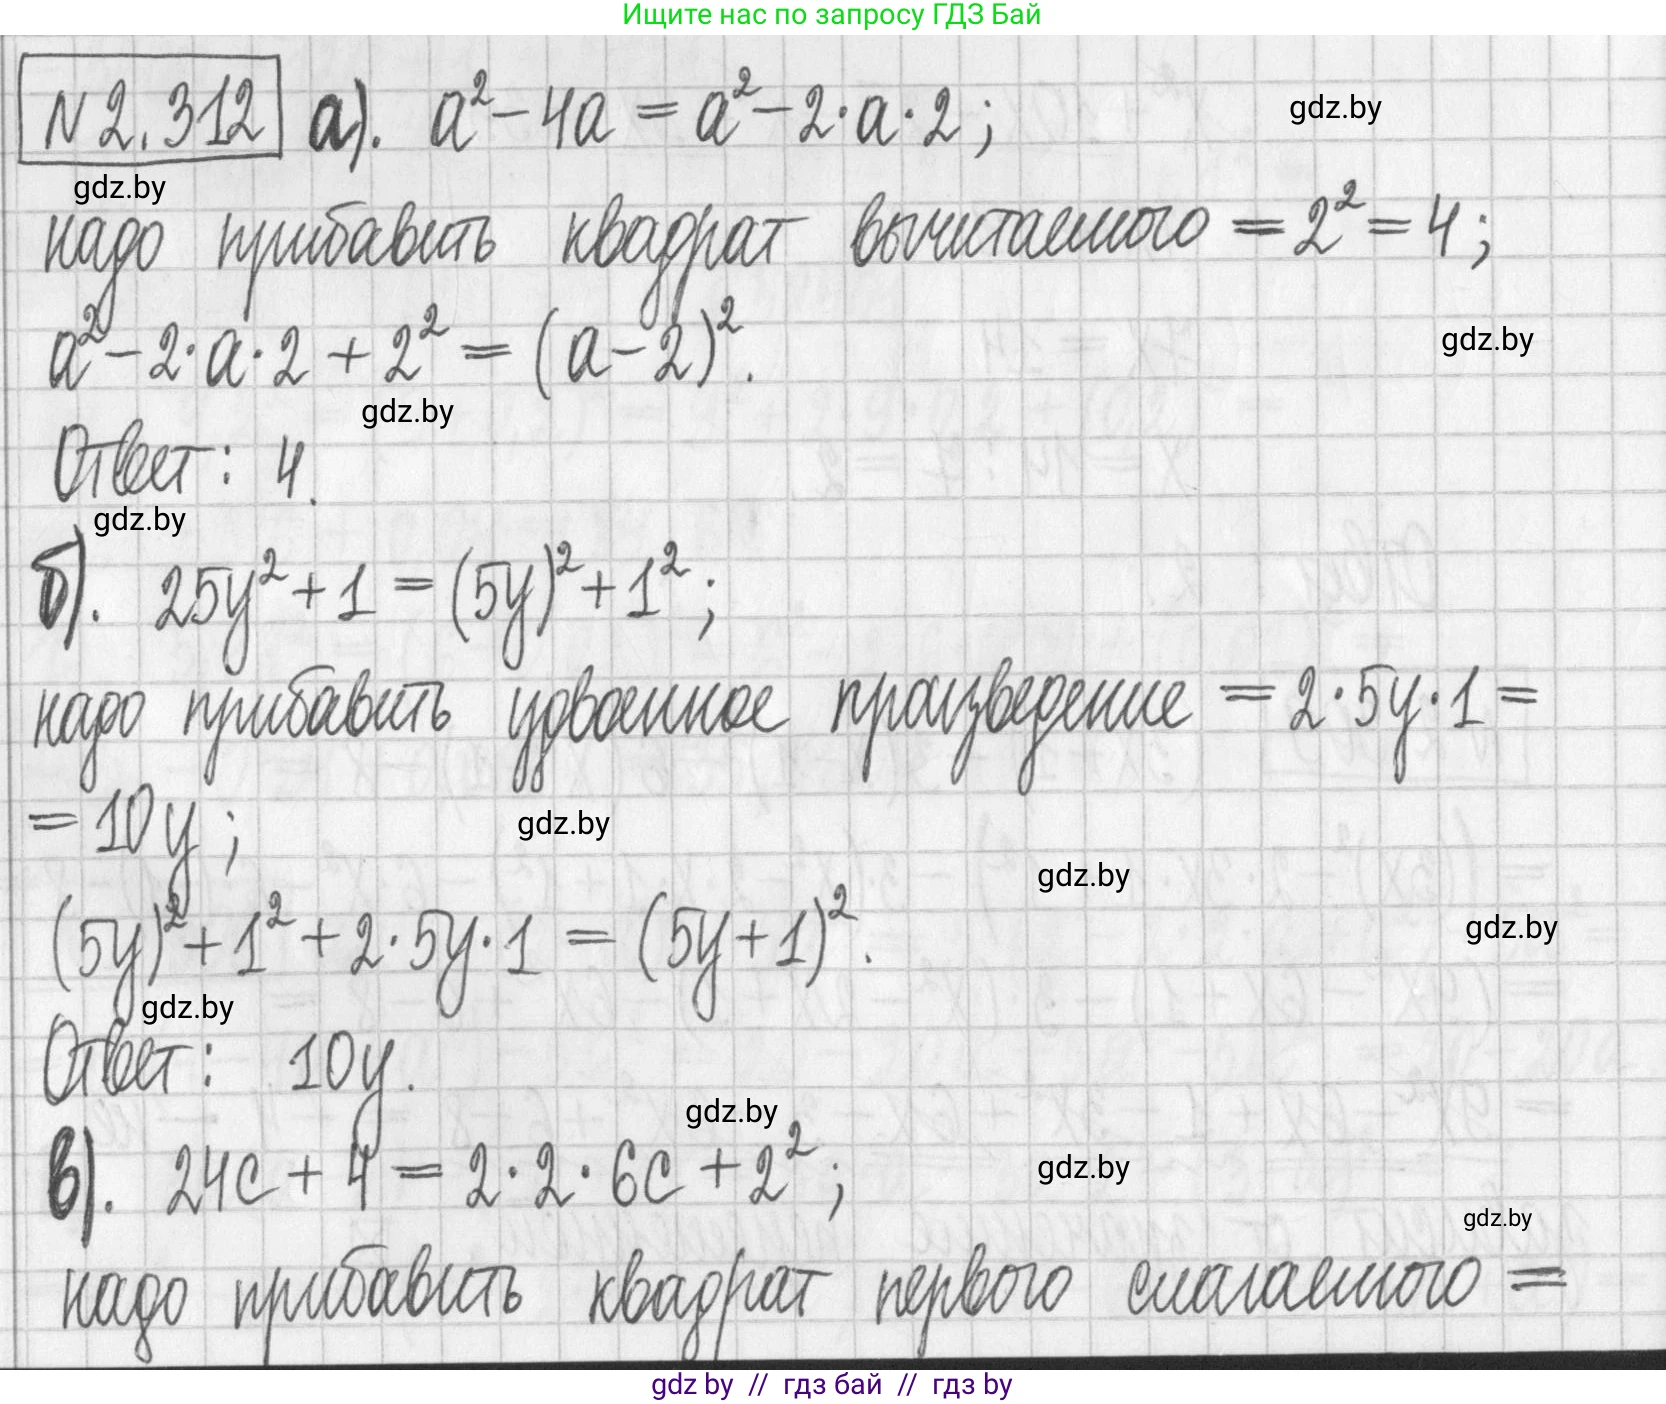 Ищите нас по запросу ГДЗ Бай
N 2.312 а). a² - 4a = a² - 2·a·2; gdz.by
gdz.by
надо прибавить квадрат вычитаемого = 2² = 4;
a² - 2·a·2 + 2² = (a-2)². gdz.by
gdz.by
Ответ: 4.
gdz.by
б). 25y² + 1 = (5y)² + 1²;
надо прибавить удвоенное произведение = 2·5y·1 =
= 10y; gdz.by
gdz.by
(5y)² + 1² + 2·5y·1 = (5y+1)². gdz.by
gdz.by
Ответ: 10y.
gdz.by
в). 24c + 4 = 2·2·6c + 2²; gdz.by
gdz.by
надо прибавить квадрат первого слагаемого =
gdz by // гдз бай // гдз by